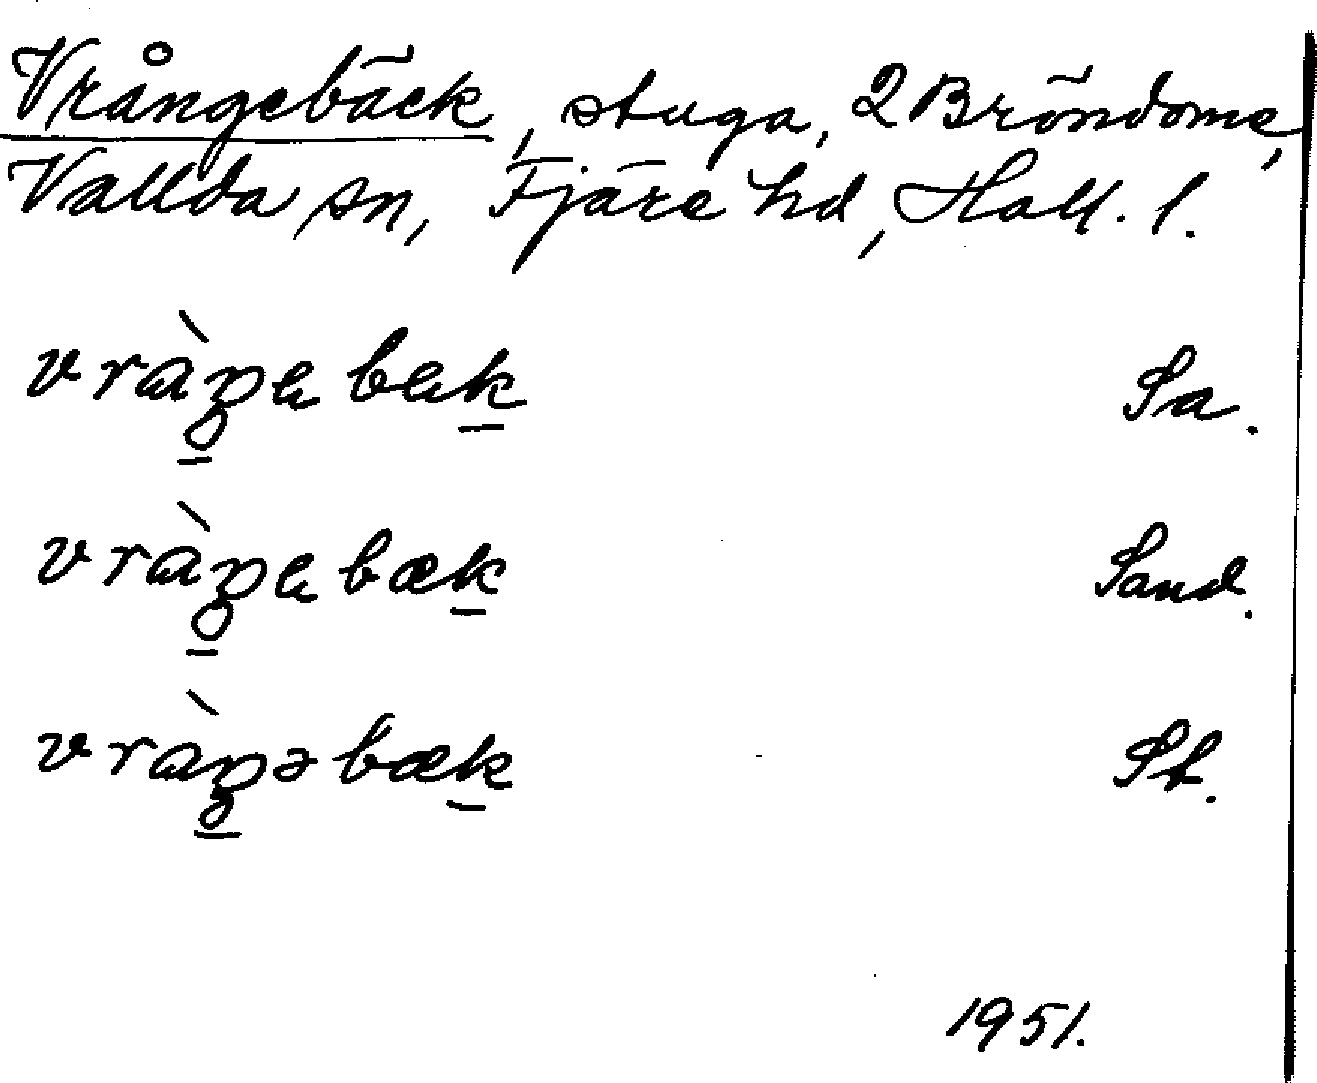 Vrångebäck, stuga, 2 Bröndome,
Vallda sn, Fjäre hd, Hall. l.
Sa.
Sand.
St.
1951.